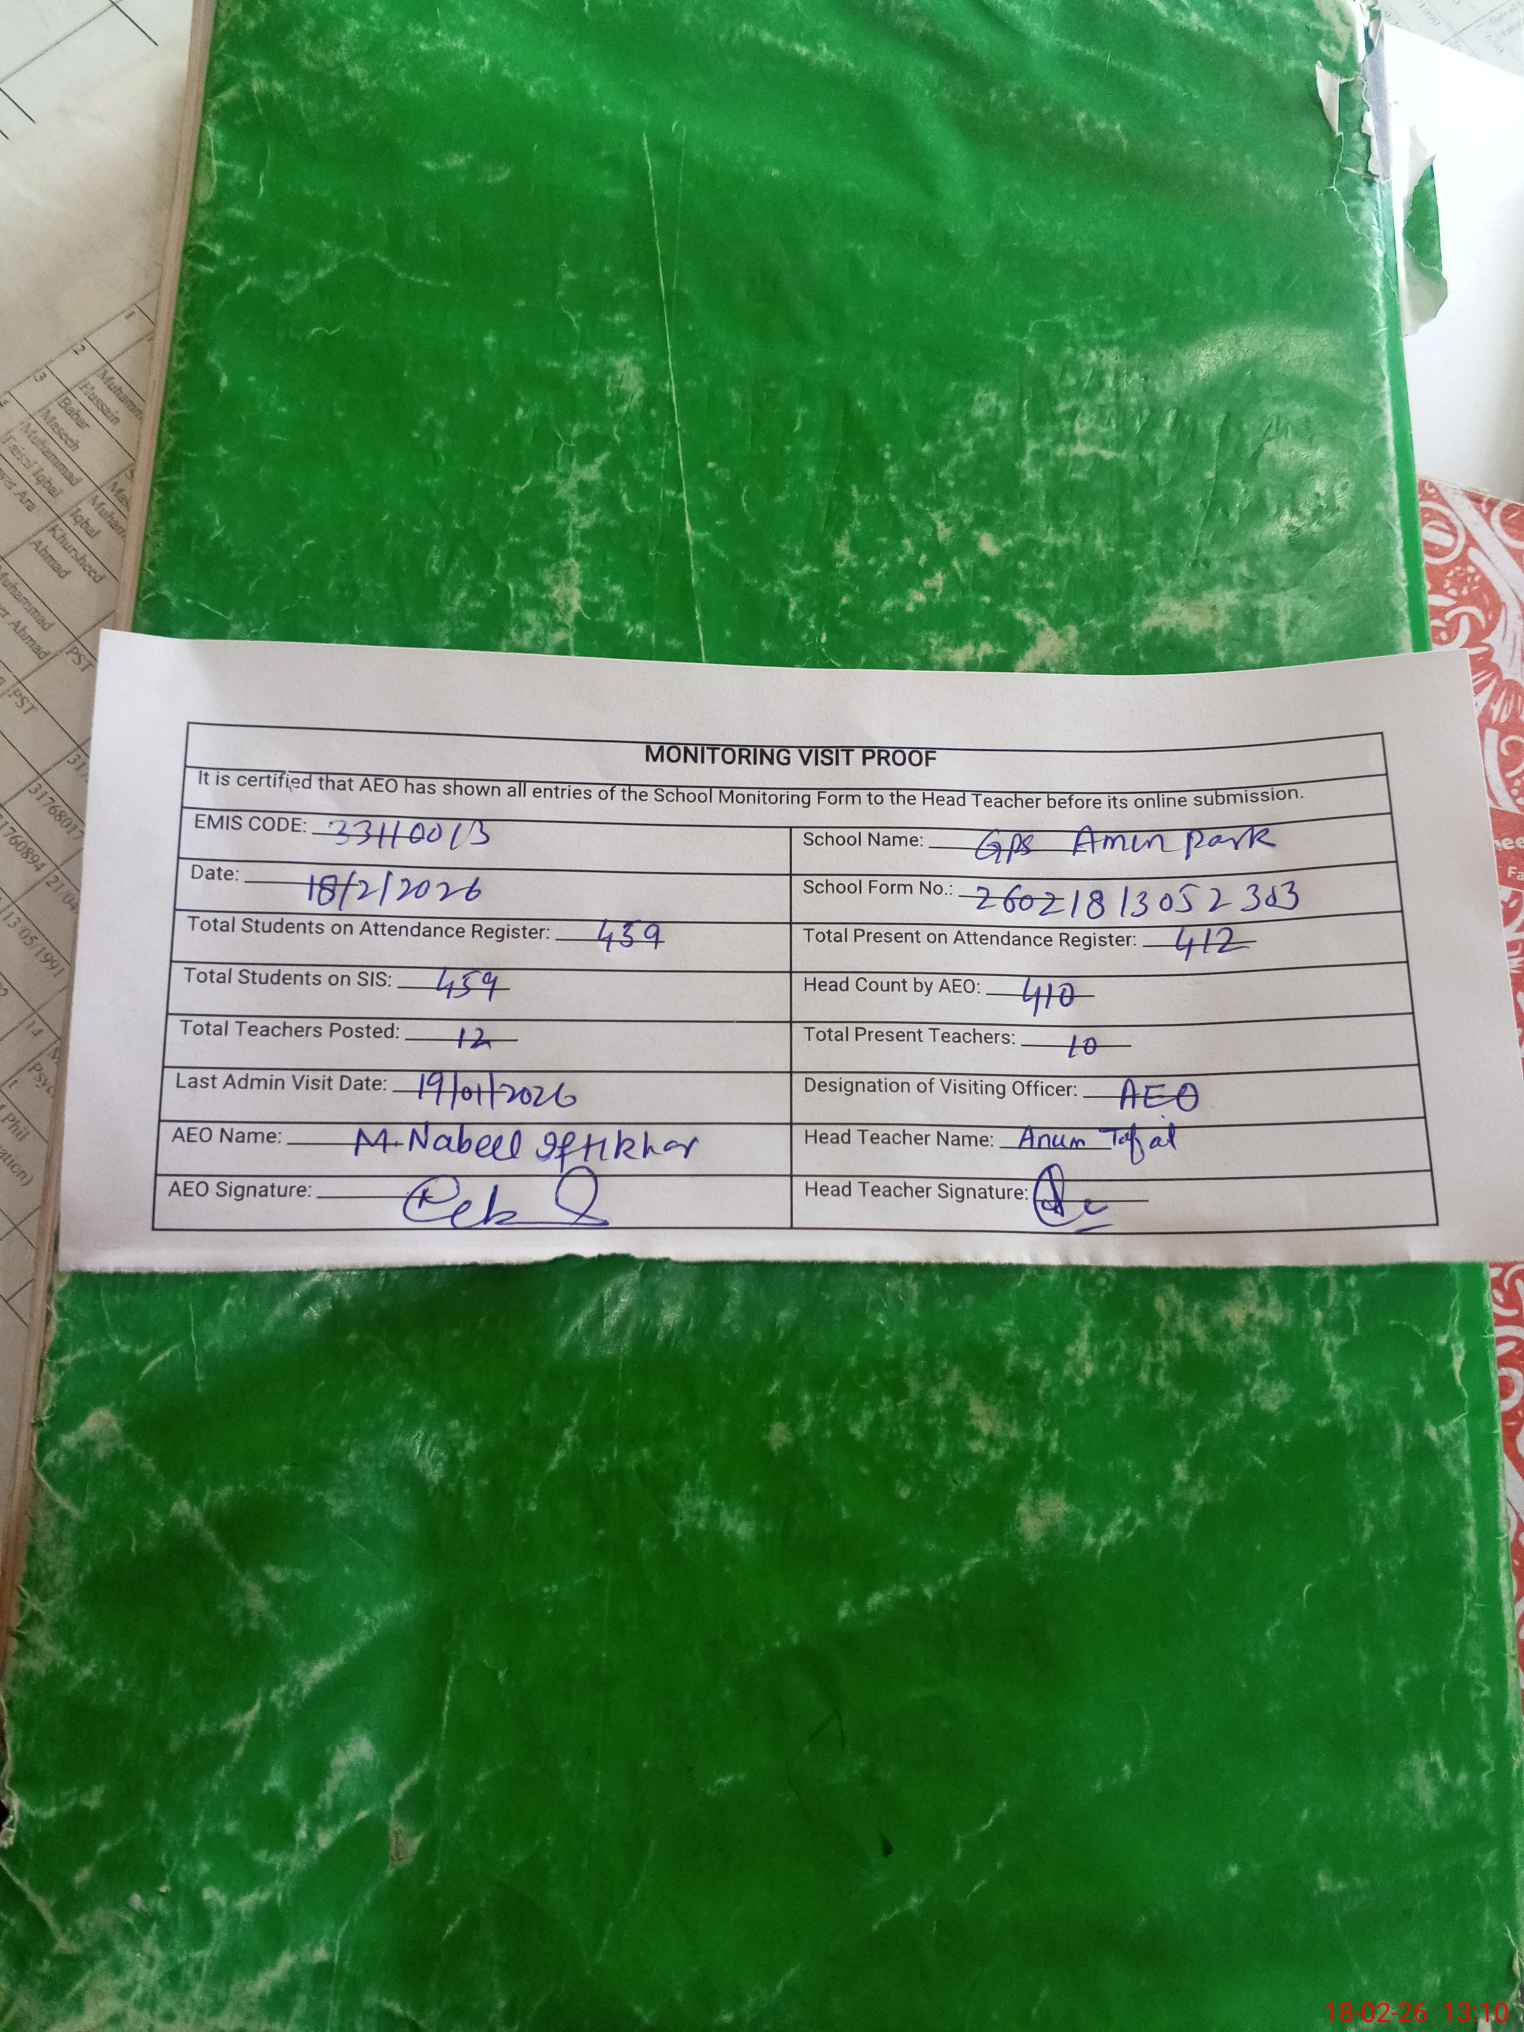 MONITORING VISIT PROOF
It is certified that AEO has shown all entries of the School Monitoring Form to the Head Teacher before its online submission.
EMIS CODE: 33110013 School Name: GPS Amin park
Date: 18/2/2026 School Form No.: 26021813052303
Total Students on Attendance Register: 459 Total Present on Attendance Register: 412
Total Students on SIS: 459 Head Count by AEO: 410
Total Teachers Posted: 12 Total Present Teachers: 10
Last Admin Visit Date: 19/01/2026 Designation of Visiting Officer: AEO
AEO Name: M. Nabeel Iftikhar Head Teacher Name: Anum
AEO Signature: Head Teacher Signature:
1
2 Muhamm
3 Hussain
Babar
Maseeh
Muhammad
Iqbal
Iqbal
Khursheed
Ahmad
Muhammad
Ahmad
PST
PST
3176801
1760894
13/05/1991
14
Phil
18-02-26 13:10